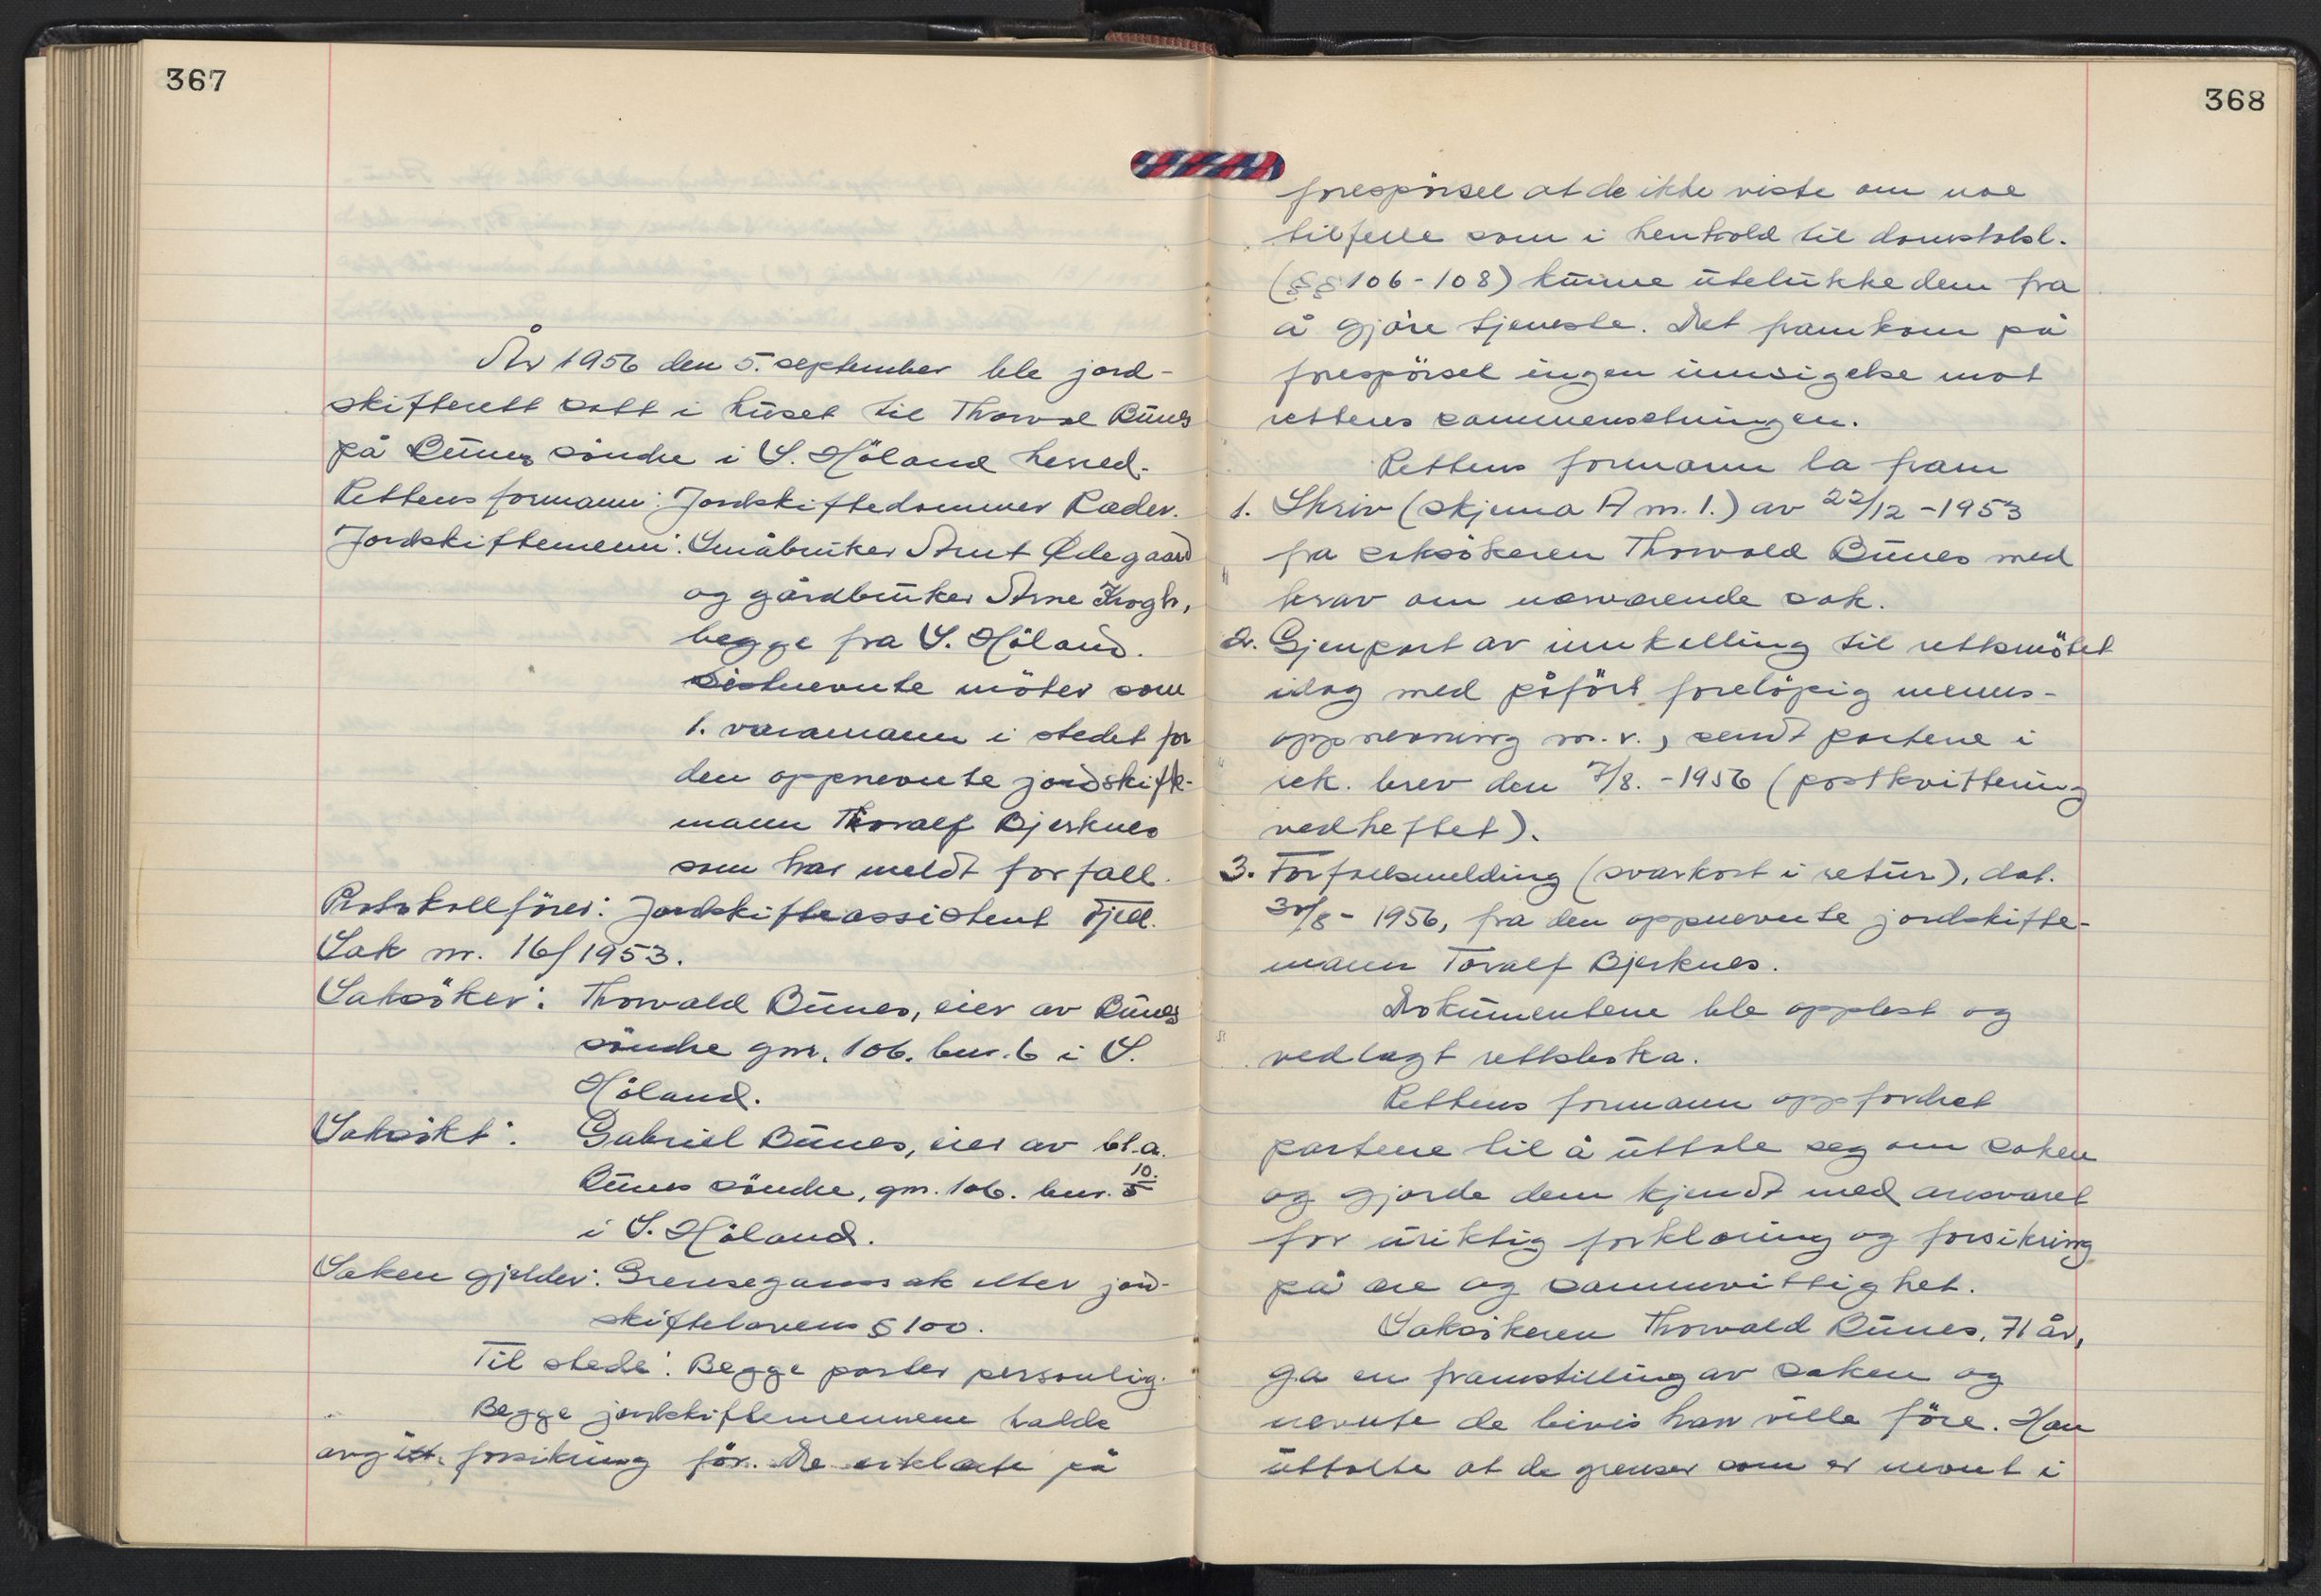 367
År 1956 den 5. september ble jord-
skifterett satt i huset til Thorval Bunes
på Bunes söndre i S. Höland herred.
Rettens formann: Jordskiftedommer Ræder.
Jordskiftemenn: Småbruker Arnt Ødegaard
og gårdbruker Arne Krogh,
begge fra S. Höland.
Sistnevnte möter som
1. varamann i stedet for
den oppnevnte jordskifte-
mann Thoralf Bjerknes
som har meldt forfall.
Protokollförer: Jordskifteassistent Fjell.
Sak nr. 16/1953.
Saksöker: Thorvald Bunes, eier av Bunes
söndre gnr. 106. bnr. 6 i S.
Höland.
Saksökt: Gabriel Bunes, eier av bl.a.
Bunes söndre, gnr. 106. bnr. 5 10.
i S. Höland.
Saken gjelder: Grensegangssak etter jord-
skiftelovens § 100.
Til stede: Begge parter personlig.
Begge jordskiftemennene hadde
avgitt forsikring för. De erklærte på
368
forespörsel at de ikke viste om noe
tilfelle som i henhold til domstolsl.
(§§ 106-108) kunne utelukke dem fra
å gjöre tjeneste. Det framkom på
forespörsel ingen innsigelse mot
rettens sammensetningen.
Rettens formann la fram
1. Skriv (skjema A m. 1.) av 22/12 - 1953
fra saksökeren Thorvald Bunes med
krav om nærværende sak.
2. Gjenpart av innkalling til rettsmötet
idag med påfört foreløpig menns-
oppnevning m.v., sendt partene i
rek. brev den 7/8. - 1956 (postkvittering
vedheftet).
3. Forfallsmelding (svarkort i retur), dat.
30/8 - 1956, fra den oppnevnte jordskifte-
mann Toralf Bjerknes.
Dokumentene ble opplest og
vedlagt rettsboka.
Rettens formann oppfordret
partene til å uttale seg om saken
og gjorde dem kjendt med ansvaret
for uriktig forklaring og forsikring
på ære og samvittighet.
Saksökeren Thorvald Bunes, 71 år,
ga en framstilling av saken og
nevnte de bevis han ville före. Han
uttalte at de grenser som er nevnt i